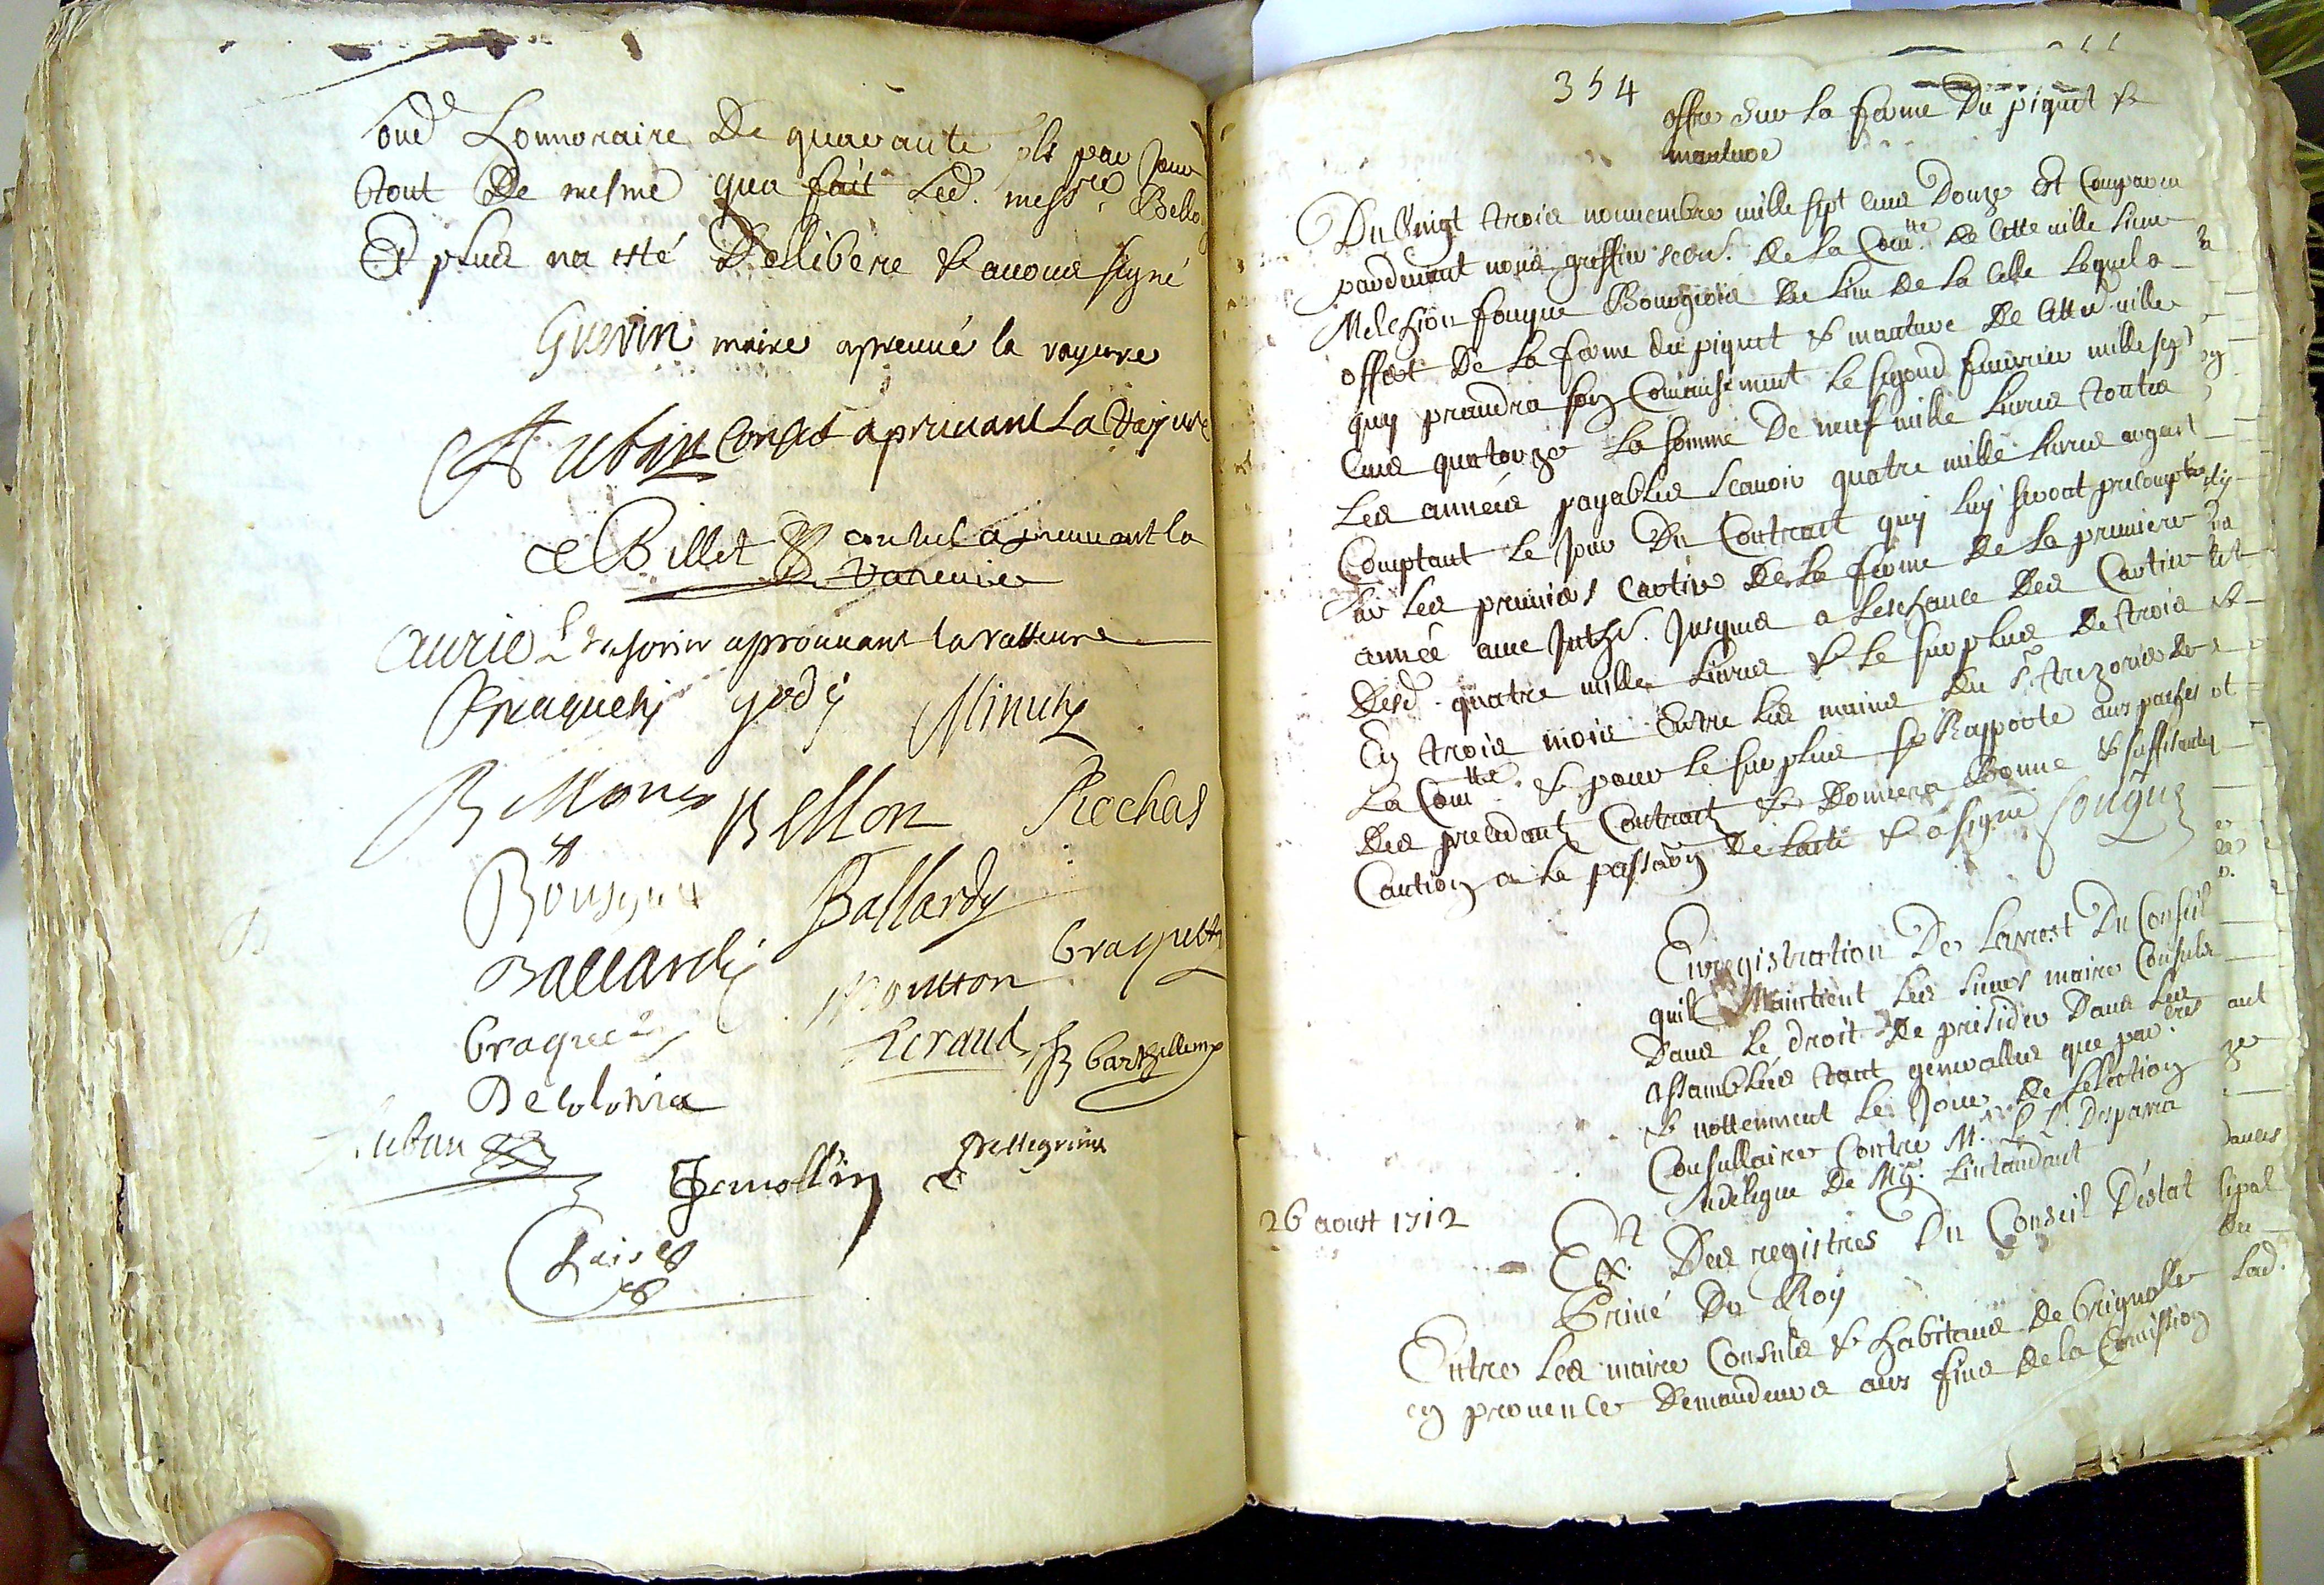 Lonnoraire De quarante par Jour
tout De mesme qua fait Led. mess.re Bello
Et plus na esté Deliberé & auons signé
Guerin maire aprouué la rayure
Auban Consul apruuant La Rayure
Billet consul apreuuant la
Aurie Tresorier aprouuant la ratture
Braquety Jody Minuty
B Mouton Bellon Rechas
Rousque Ballardy
Ballardy Moutton Braquety
Braquety Leraud Barthellemy
Decolonia
Auban
Jemollin Pellegrin
Rais
354
offre sur la ferme Du piquet &
mouture
Du Vingt trois nouuembre mille sept cens Douze est Comparu
pardeuant nous greffier secre.re De La Com.tte De Cette uille sieur
Melchion fouque Bourgeois du Lieu De La Celle Lequel a
offert De La ferme du piquet & mouture De Cette uille
quy prandra son Comansement le segond feurier mille sept
cens quatorze La somme De neuf mille Liures toutes
Les années payables scauoir quatre mille Liures argent
Comptant le Jour Du Contract quy Luy seront precomptes
sur Les premiers Cartiers De La ferme De La premiere
année aue Juthr. Jusques a Leschance Des Cartiers
Desd. quatre mille Liures & le surplus De trois
En trois mois Entre Les mains Du sr trezorier de
La Com.tte & pour le surplus se Rapporte aux paches
Des precedants Contract & Donnera Bonne & suffisante
Caution a la passaon De Lacte & a signé fouque
Enregistration De Larrest Du Conseil
quil Maintient Les sieurs maire Consuls
Dans le droit De presider Dans Les
assamblées tant generalles que par.res
& nottemment Le Jour De Lelection
Consullaire Contre M.re Desparra
sudelegue De Mgr. Lintandant
26 aoust 1712
Ext. Des registres Du Conseil Destat
Priué Du Roy
Entre Les maire Consuls & habitans De Brignolle
en prouence Demandeurs aux fins De la Comission